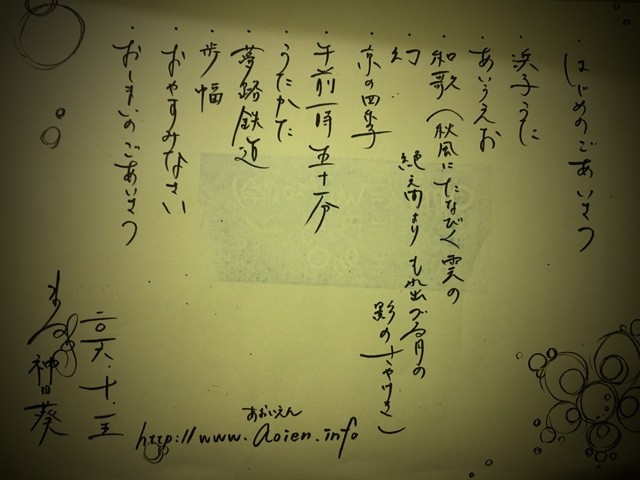 ・はじめのごあいさつ
・浜子うた
・あいうえお
・和歌（秋風にたなびく雲の
絶え間よりもれ出づる月の
影のさやけき）
・幻
・京の四季
・午前一時五十分
・うたかた
・夢路鉄道
・歩幅
・おやすみなさい
・おしまいのごあいさつ
神田葵
あおいえん
http://www.aoien.info